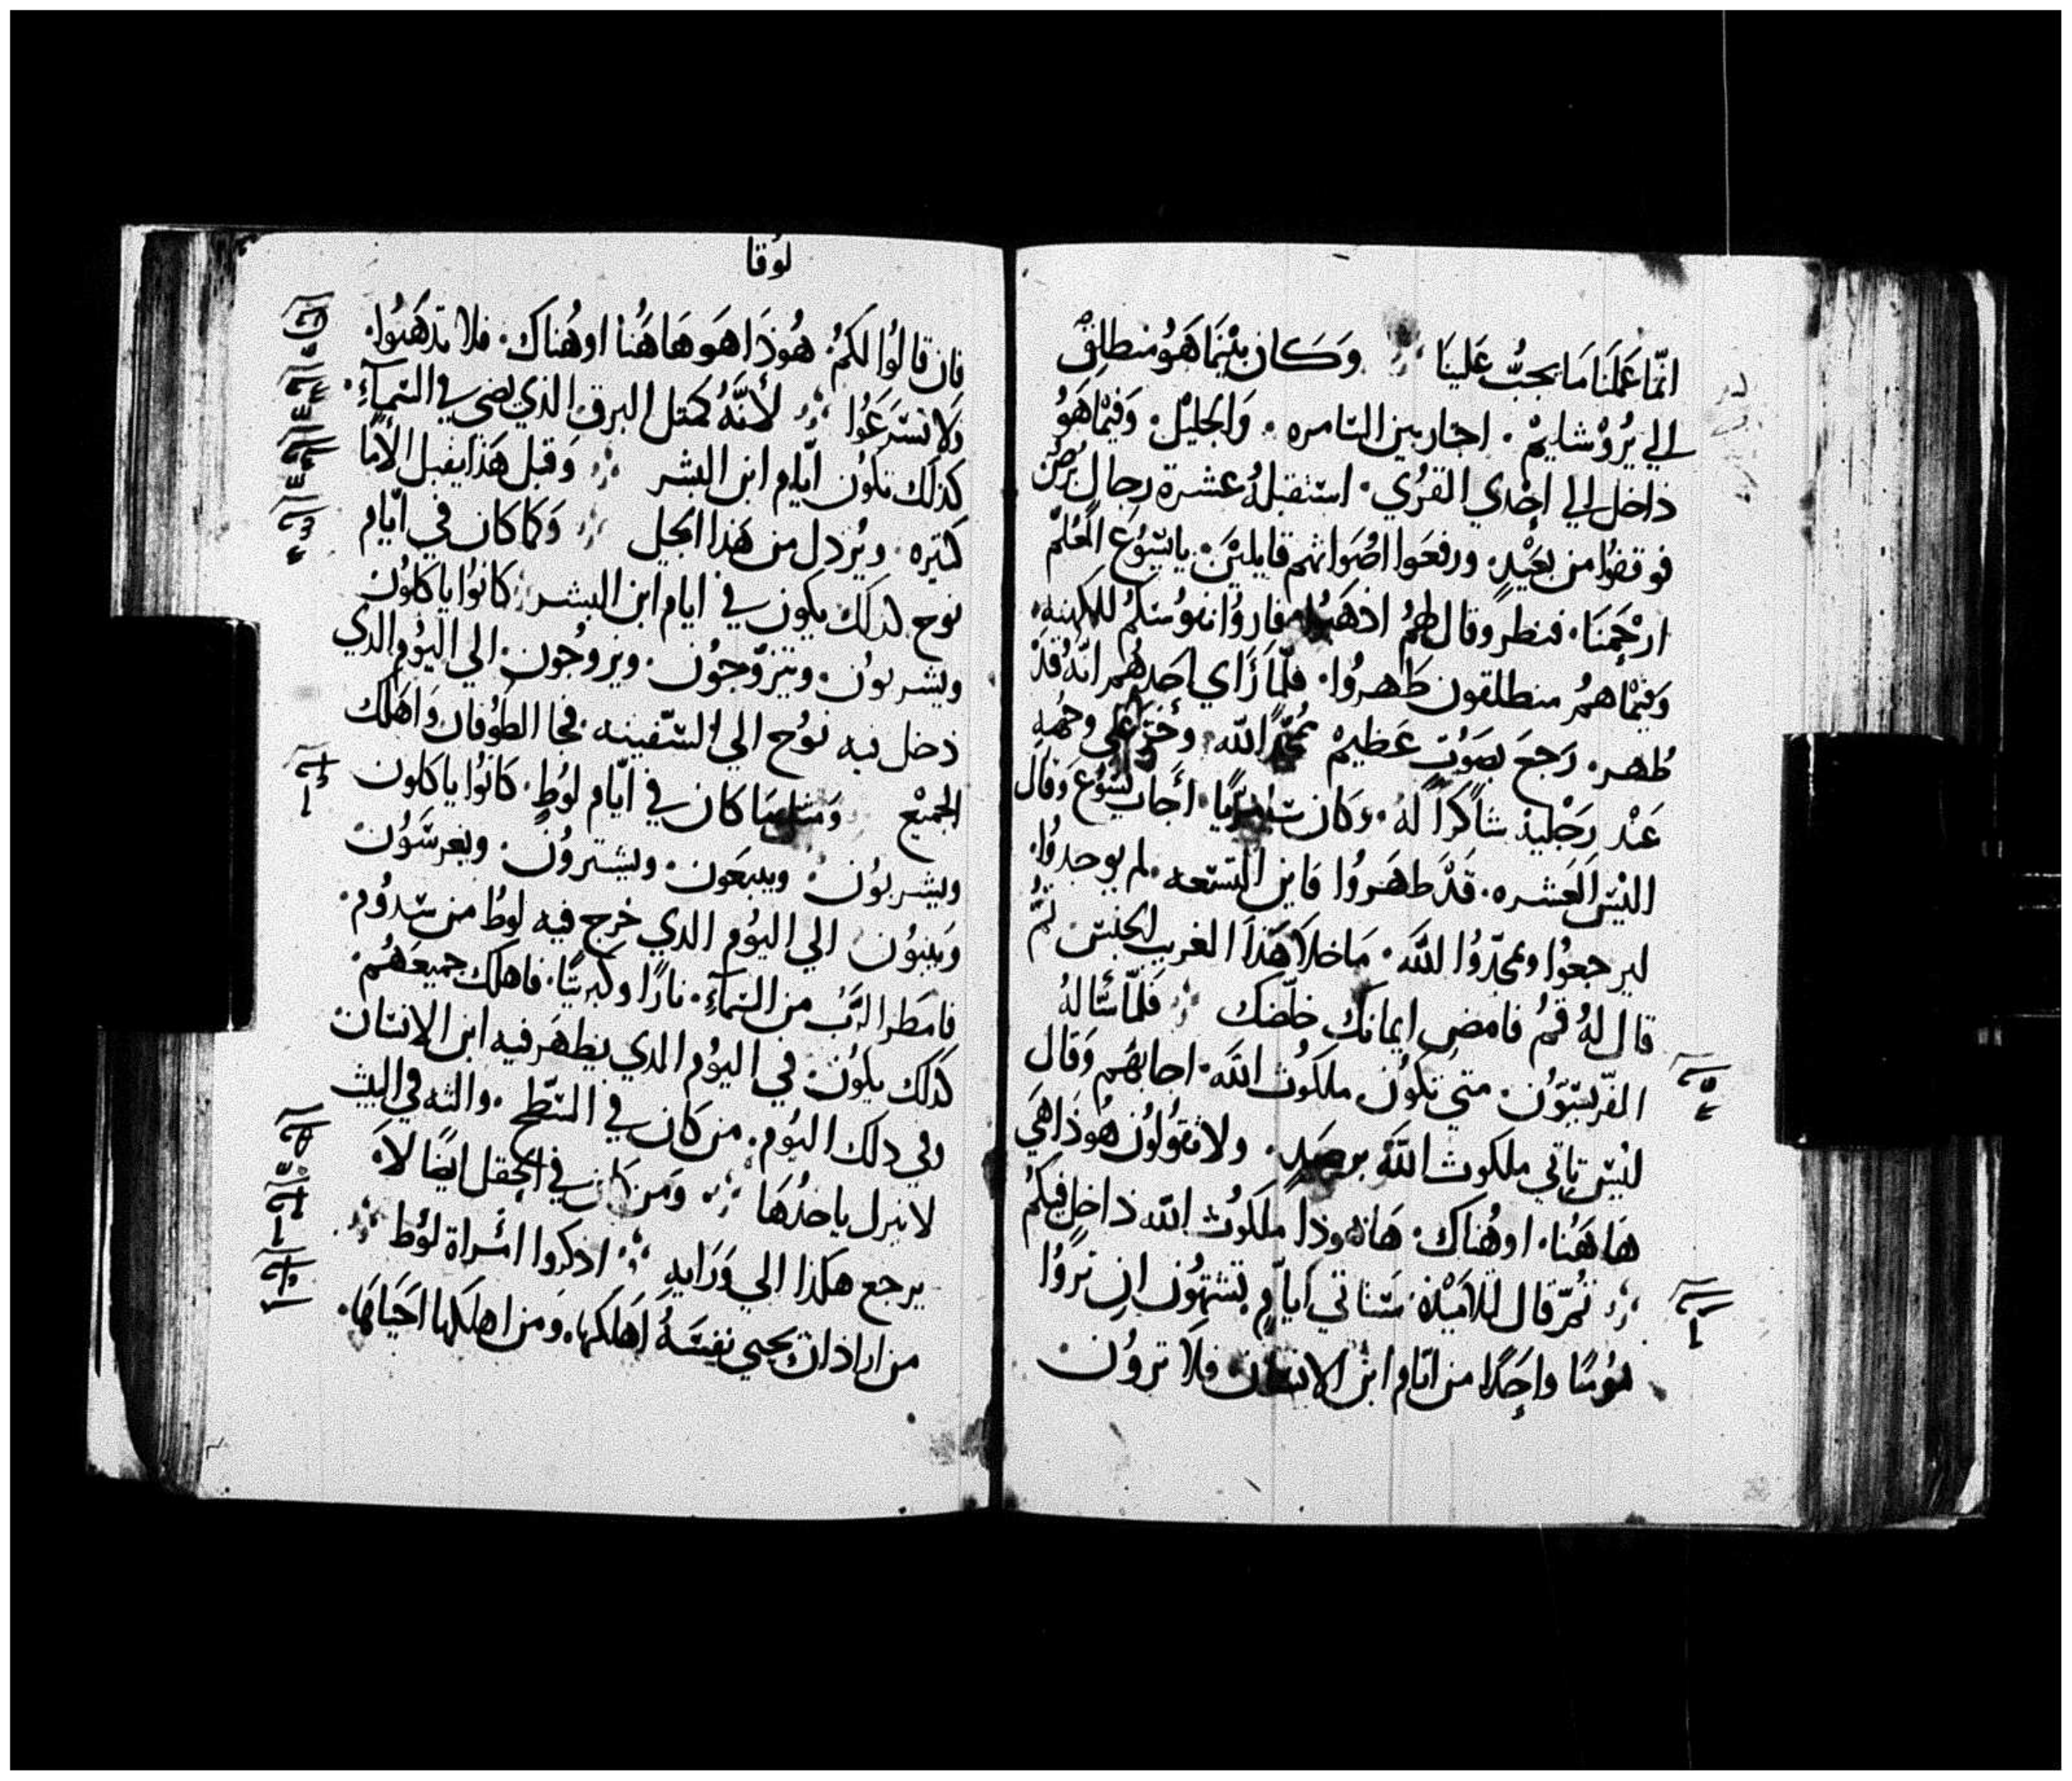 انّما عَملنَا مَا يجبُّ عَلينَا وَكان بيْنمَا هَوُ منطلِق
الي يُرُوْشَليمْ. اجتاز بين السّامره. وَالجليْل. وَفيْمَا هَوُ
داخل الي اِحْدي القرُي. استقبلهُ عشرة رجال بُرْصٌ
فوقفوُا من بعَيْدٍ. ورفعَوا اصُوَاتهم قايليْن. يايسُوُعَ المعُلّم
ارْحَمنَا. فنظر وقال لهمُ اذهَبوُا فاروُا نفوُسَكمُ للكهنه.
وَفيْمَا همُ منطلقون طَهرُوا. فلمّا رَاي احَدهُم انّهُ قدْ
طُهر. رَجعَ بصَوْت عَظيمْ مُمجّدًا اللّه. وخَرّ عَلي وجْهِهِ
عَنْد رَجْليهْ شاكرًا لهُ. وَكان سَامريًا. أجَاب يسُوُعَ وَقال
اليْسَ العَشره. قدْ طهَروُا فاين التسّعه. لم يوجدوُا.
ليرجعوُا ويمجّدوُا اللّه. مَا خلا هَذا الغريب الجنسْ. ثمُّ
قال لهُ قمُ فامضِ ايمانك خلّصَك فلمّا سَالهُ
الفرّيسّيّوُن. متي تكوُن ملكوُت اللّه. اجابهَم وَقال
ليْسَ تاتي ملكوت اللّه برصَدٍ. ولا تقوُلوُن هُوذا هَي
هَاهَنُا. او هُناك. هَا هُوذا ملكوُت اللّه داخل فيكمُ
ثمُّ قال لتلامَيْذه. سَتاتي ايّام تشتهوُن ان ترَوُا
يوُمًا واحِدًا من ايّام ابن الانسَان فلا تروُن
لوُقا
فان قالوُا لكمُ. هُوذا هَو هَاهَنُا او هُناك. فلا تذهَبوُا.
وَلا تسَرعَوُا لأنّهُ كمَثل البرق الذي يضي في السّمآءِ.
كذلك تكوُن ايّام ابن البشر وَقبل هَذا يقبل الأمًا
كثيره. ويُرذل من هَذا الجيل وَكمَا كان في ايّام
نوح. كذلك يكون في ايام ابن البشر كانوُا ياكلوُن
ويشربوُن. ويتزوّجوُن. ويزوجُون. الي اليوُم الذي
دخل فيه نوُح الي السّفينه. فجا الطوُفان وَاهَلك
الجميْع وَمثلمَا كان في ايّام لوُطٍ. كانوُا ياكلون
ويشربوُن. ويبيعَون. ويشتروُن. ويغرسَوُن
وَيبنوُن الي اليوُم الذي خرج فيه لوطُ من سَدوُم.
فامطر الرّبُ من السّمآءِ. نارًا وكبريتًا. فاهلك جميعَهُم.
كذلك يكوُن في اليوُم الذي يظهَر فيه ابن الانسَان
وفي ذلك اليوُم. من كان في السّطح. والته في البيت
لا ينزل ياخذهَا وَمن كان في الحقل ايضًا لاَ
يرجع هكذا الي وَرَايه اذكروا امُراة لوُط
من اراد ان يحيي نفسَهُ اَهَلكهَا. وَمن اهلكهَا احَيَاهَا.